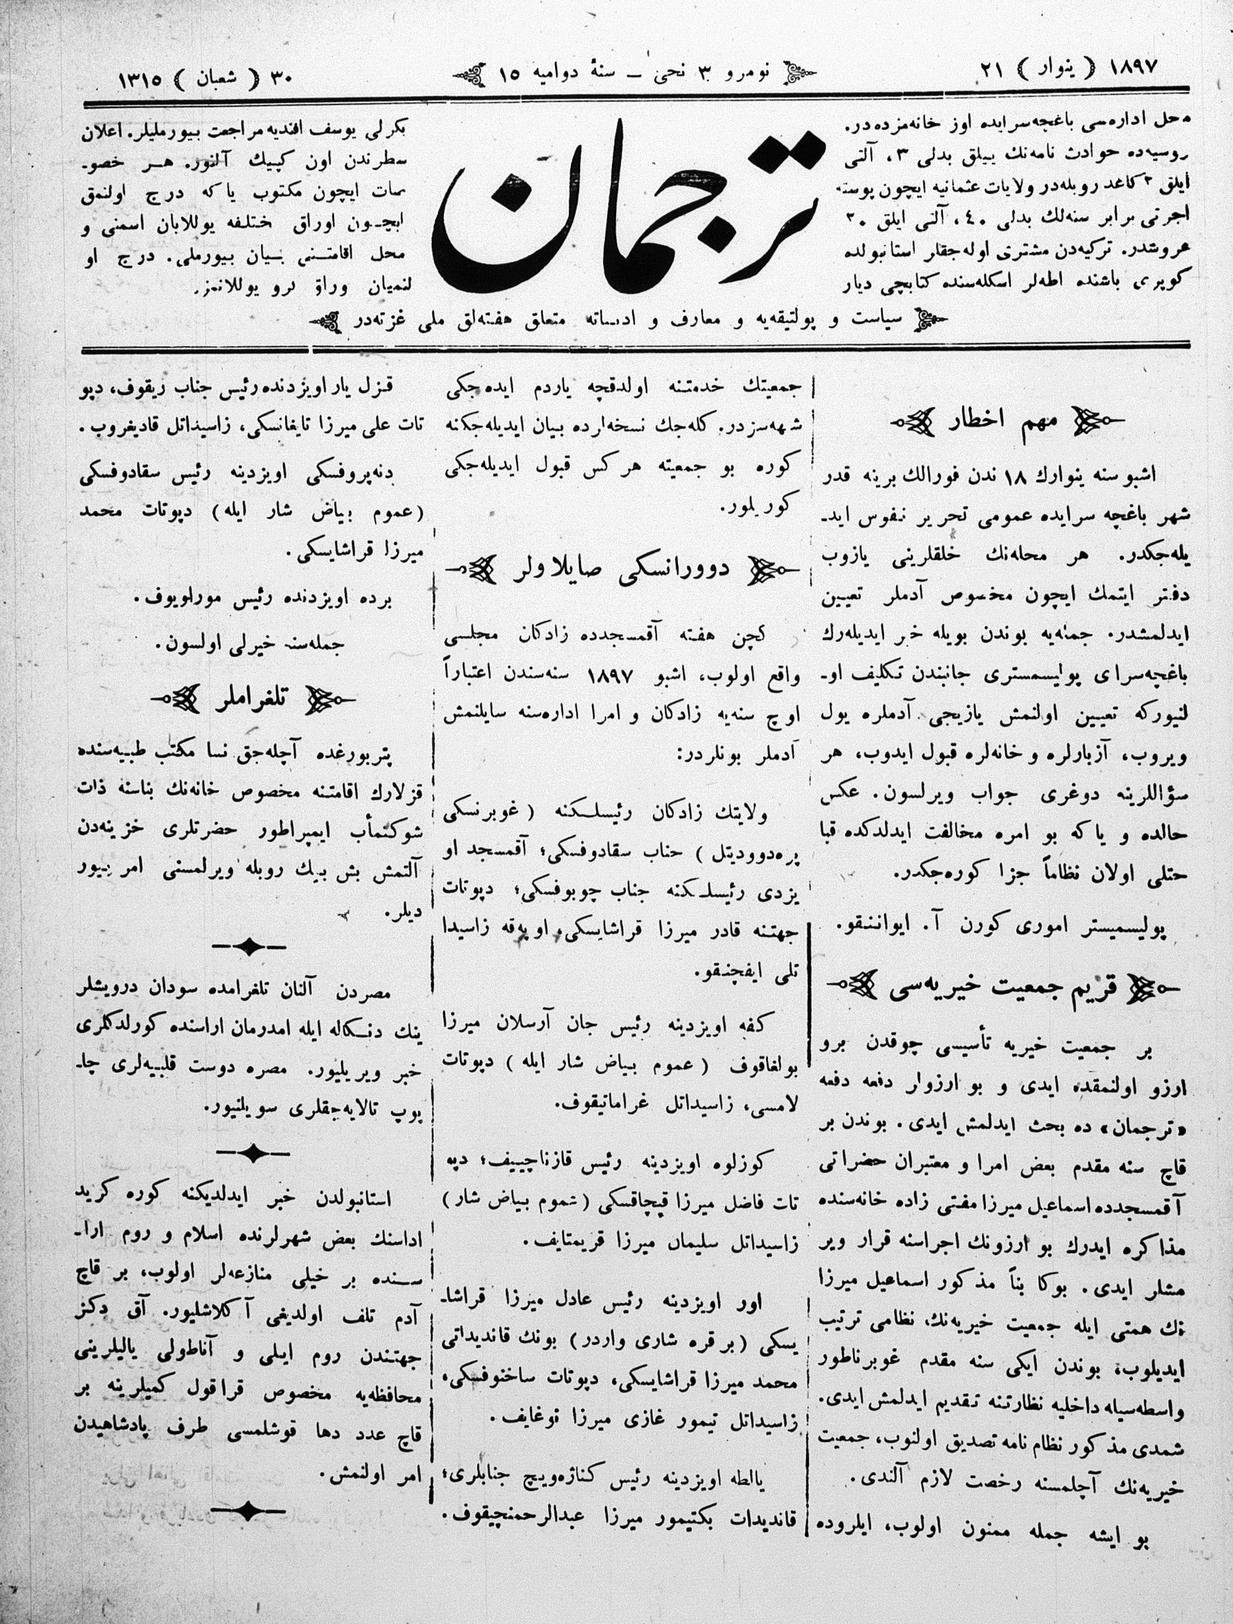 ١٨٩٧ ( ینوار ) ٢١
نومرو ٣ نجی — سنۀ دوامیه ١٥
٣٠ ( شعبان ) ١٣١٥
محل اداره‌سی باغچه‌سرایده اوز خانه‌مزده‌در.
روسیه‌ده حوادث نامه‌نك ییللق بدلی ٣، آلتی
ایلق ٢ کاغد روبله‌در ولایات عثمانیه ایچون پوسته
اجرتی برابر سنه‌لك بدلی ٤٠، آلتی ایلق ٢٠
غروشدر. ترکیه‌دن مشتری اوله‌جقلر استانبولده
کوپری باشنده اطه‌لر اسکله‌سنده کتابچی دیار
ترجمان
بکرلی یوسف افندیه مراجعت بیورملیلر. اعلان
سطرندن اون کپیك آلنور. هر خصو-
صات ایچون مکتوب یا که درج اولنمق
ایچون اوراق ختلفه یوللایان اسمنی و
محل اقامتنی بیان بیورملی. درج او
لنمیان وراق کرو یوللانمز.
سیاست و پولتیقه‌یه و معارف و ادبیاته متعلق هفته‌لق ملی غزته‌در
مهم اخطار
اشبو سنه ینوارك ١٨ ندن فورالك برینه قدر
شهر باغچه سرایده عمومی تحریر نفوس اید-
یله‌جکدر. هر محله‌نك خلقلرینی یازوب
دفتر ایتمك ایچون مخصوص آدملر تعیین
ایدلمشدر. جمله‌یه بوندن بویله خبر ایدیله‌رك
باغچه‌سرای پولیسمستری جانبندن تکلیف او-
لنیورکه تعیین اولنمش یازیجی آدملره یول
ویروب، آزبارلره و خانه‌لره قبول ایدوب، هر
سؤاللرینه دوغری جواب ویرلسون. عکس
حالده و یاکه بو امره مخالفت ایدلدکده قبا
حتلی اولان نظاماً جزا کوره‌جکدر.
پولیسمیستر اموری کورن آ. ایواننقو.
قریم جمعیت خیریه‌سی
بر جمعیت خیریه تأسیسی چوقدن برو
ارزو اولنمقده ایدی و بو ارزولر دفعه دفعه
«ترجمان» ده بحث ایدلمش ایدی. بوندن بر
قاچ سنه مقدم بعض امرا و معتبران حضراتی
آقمسجدده اسماعیل میرزا مفتی زاده خانه‌سنده
مذاکره ایدرك بو ارزونك اجراسنه قرار ویر
مشلر ایدی. بوکا بناً مذکور اسماعیل میرزا
نك همتی ایله جمعیت خیریه‌نك، نظامی ترتیب
ایدیلوب، بوندن ایکی سنه مقدم غوبرناطور
واسطه‌سیله داخلیه نظارتنه تقدیم ایدلمش ایدی.
شمدی مذکور نظام نامه تصدیق اولنوب، جمعیت
خیریه‌نك آچلمسنه رخصت لازم آلندی.
بو ایشه جمله ممنون اولوب، ایلروده
جمعیتك خدمتنه اولدقچه یاردم ایده‌جکی
شبهه‌سزدر. کله‌جك نسخه‌لرده بیان ایدیله‌جکنه
کوره بو جمعیته هرکس قبول ایدیله‌جکی
کوریلور.
دوورانسکی صایلاولر
کچن هفته آقمسجدده زادکان مجلسی
واقع اولوب، اشبو ١٨٩٧ سنه‌سندن اعتباراً
اوچ سنه‌یه زادکان و امرا اداره‌سنه سایلنمش
آدملر بونلردر:
ولایتك زادکان رئیسلکنه ( غوبرنسکی
پره‌دوودیتل ) جناب سقادوفسکی؛ آقمسجد او
یزدی رئیسلکنه جناب چوبوفسکی؛ دپوتات
جهتنه قادر میرزا قراشایسکی، اوپه‌قه زاسیدا
تلی ایفچنقو.
کفه اویزدینه رئیس جان آرسلان میرزا
بولغاقوف ( عموم بیاض شار ایله ) دپوتات
لامسی، زاسیداتل غراماتیقوف.
کوزلوه اویزدینه رئیس قازناچییف؛ دپو
تات فاضل میرزا قپچاقسکی ( عموم بیاض شار )
زاسیداتل سلیمان میرزا قریمتایف.
اور اویزدینه رئیس عادل میرزا قراشا-
یسکی ( بر قره شاری واردر ) بونك قاندیداتی
محمد میرزا قراشایسکی، دپوتات ساخنوفسکی،
زاسیداتل تیمور غازی میرزا نوغایف.
یالطه اویزدینه رئیس کناژه‌ویچ جنابلری؛
قاندیدات بکتیمور میرزا عبدالرحمنچیقوف.
قزل یار اویزدنده رئیس جناب ریقوف، دپو
تات علی میرزا تایغانسکی، زاسیداتل قادیغروب.
دنه‌پروفسکی اویزدینه رئیس سقادوفسکی
( عموم بیاض شار ایله ) دپوتات محمد
میرزا قراشایسکی.
برده اویزدنده رئیس مورلویوف.
جمله‌سنه خیرلی اولسون.
تلغراملر
پتربورغده آچله‌جق نسا مکتب طبیه‌سنده
قزلارك اقامتنه مخصوص خانه‌نك بناسنه ذات
شوکتمأب ایمپراطور حضرتلری خزینه‌دن
آلتمش بش بیك روبله ویرلمسنی امر بیور
دیلر.
مصردن آلنان تلغرامده سودان درویشلر
ینك دنكاله ایله امدرمان اراسنده کورلدکلری
خبر ویریلیور. مصره دوست قلبیه‌لری چا-
پوپ تالایه‌جقلری سویلنیور.
استانبولدن خبر ایدلدیکنه کوره کرید
اداسنك بعض شهرلرنده اسلام و روم ارا-
سنده بر خیلی منازعه‌لر اولوب، بر قاچ
آدم تلف اولدیغی آکلاشلیور. آق دکز
جهتندن روم ایلی و آناطولی یالیلرینی
محافظه‌یه مخصوص قراقول کمیلرینه بر
قاچ عدد دها قوشلمسی طرف پادشاهیدن
امر اولنمش.